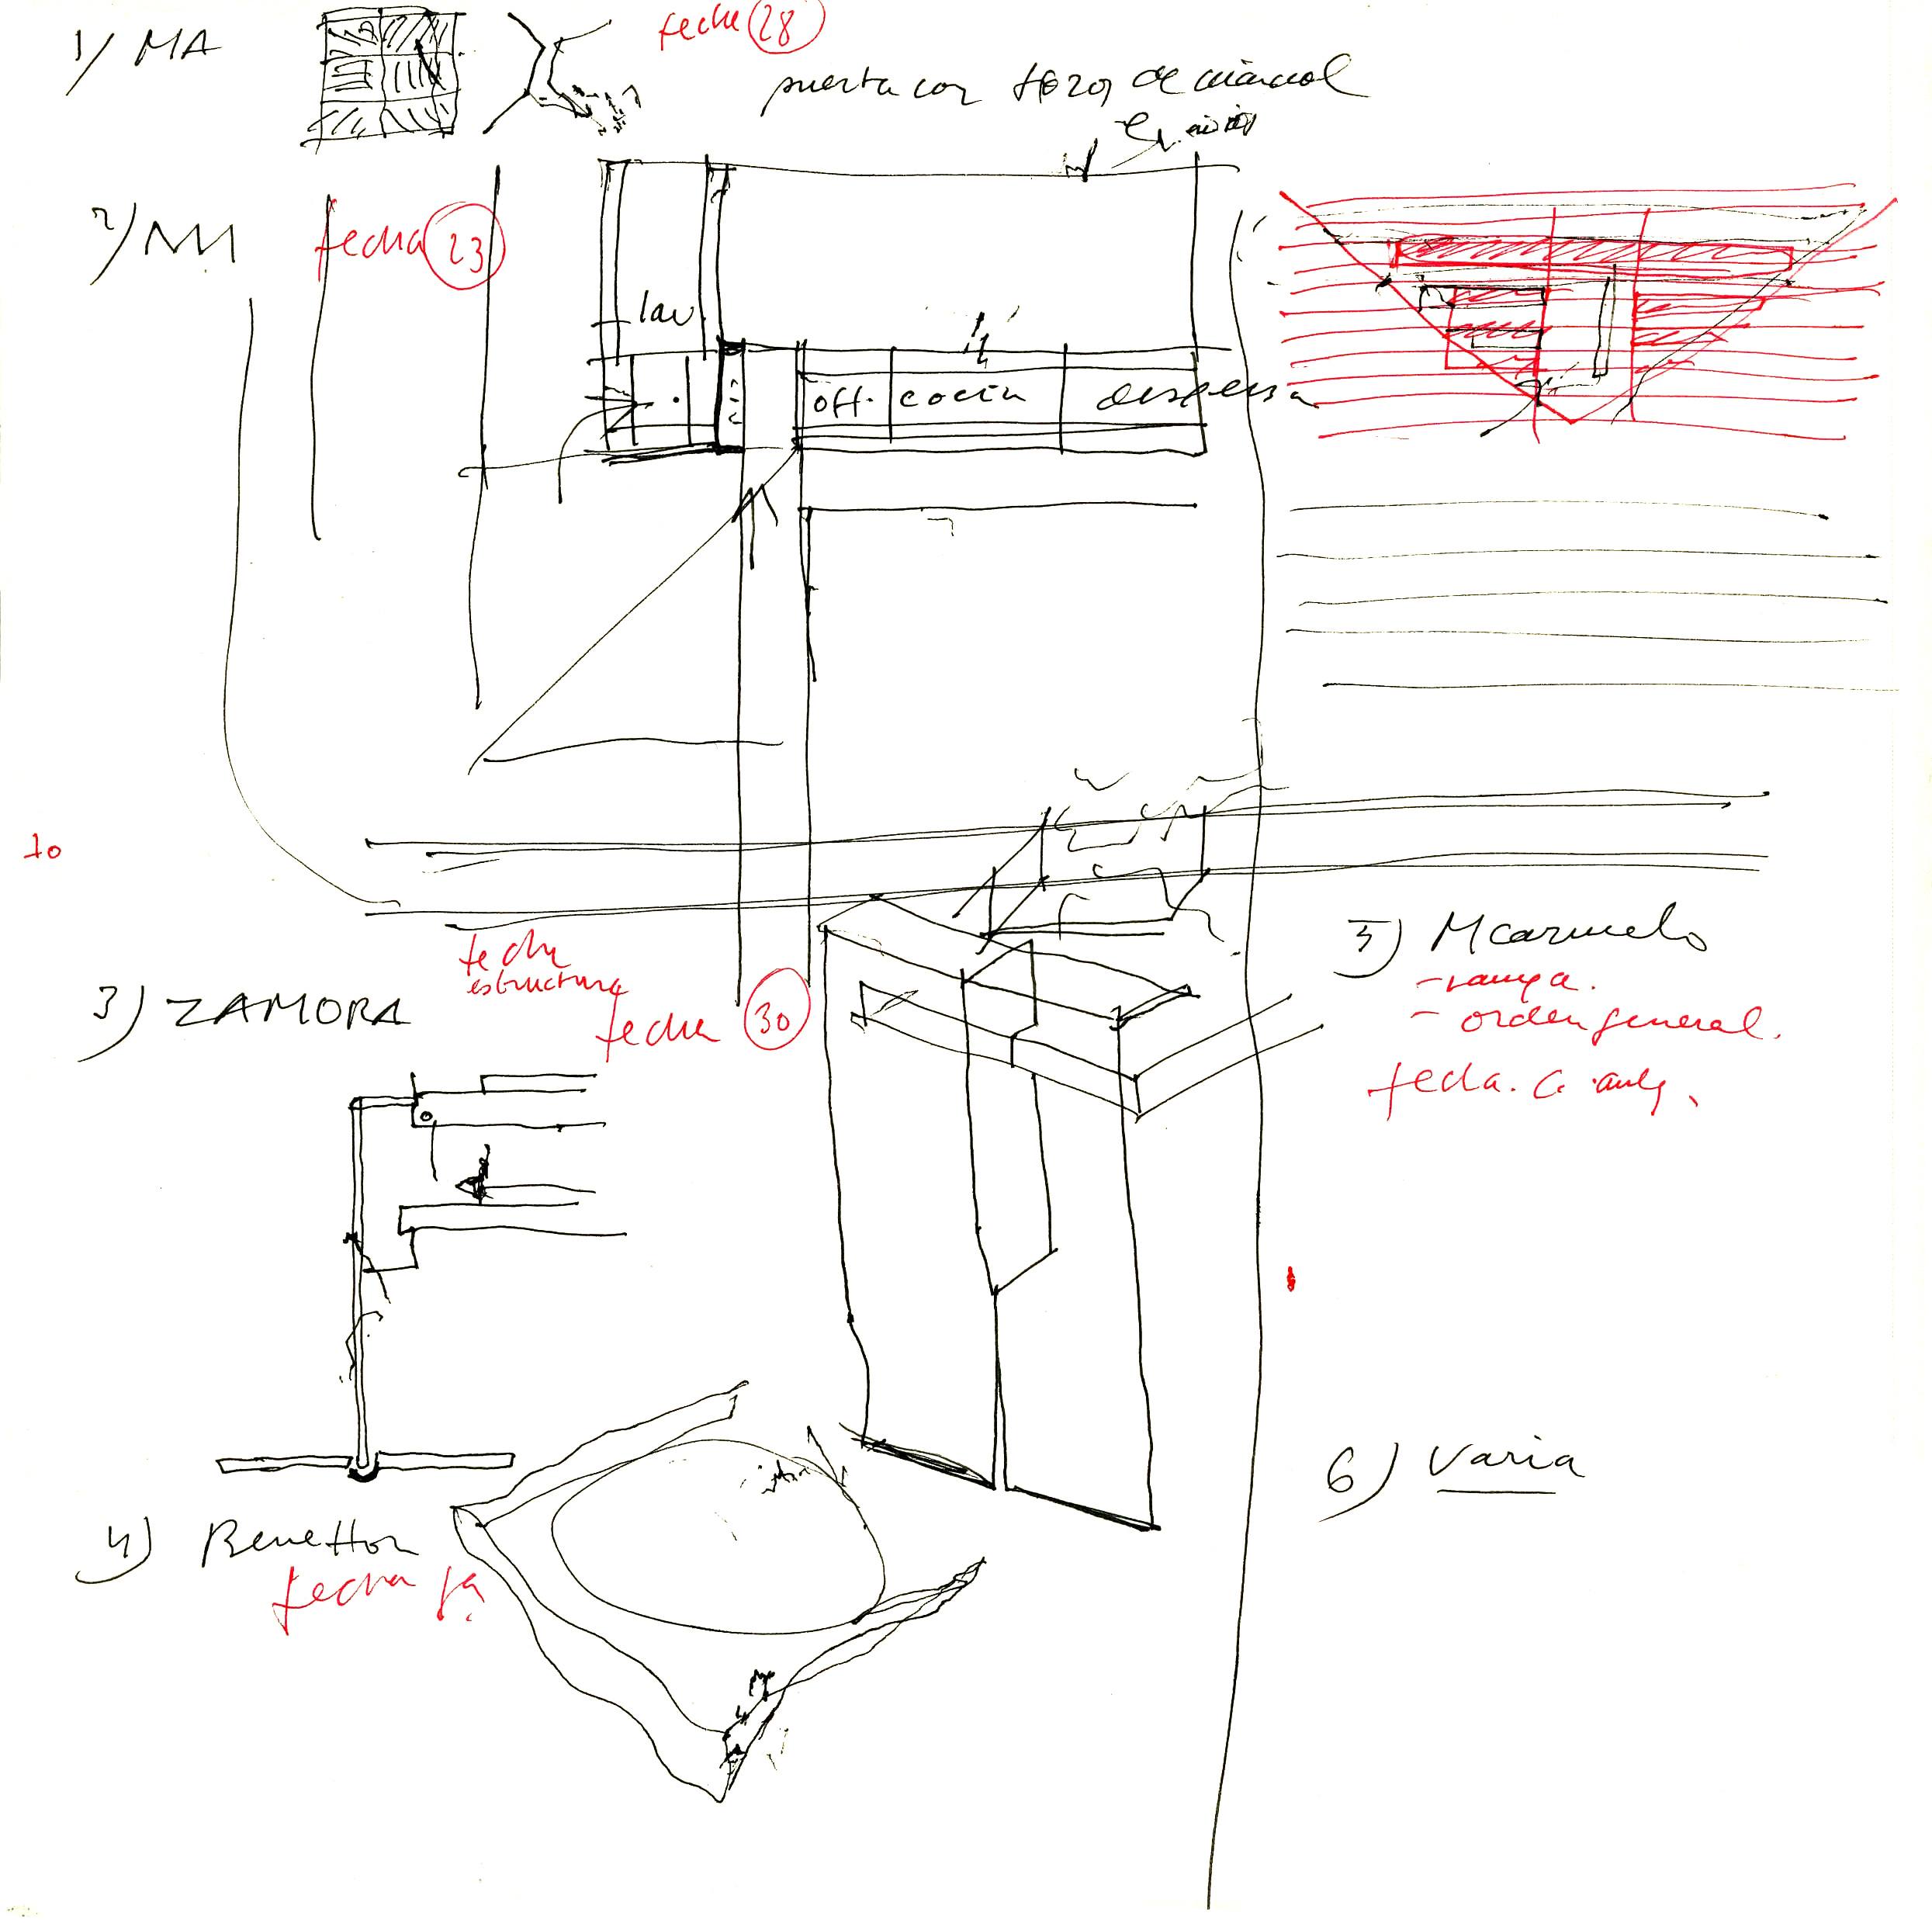 1/ MA
fecha 28
puerta con trozos de mármol
2/ NM
fecha 23
lav
off. cocin despensa
10
fecha
estructura
3) ZAMORA
fecha 30
5) M carmelo
- rampa.
- orden general.
fecha. C.
4) Benetton
fecha ya.
6) Varia